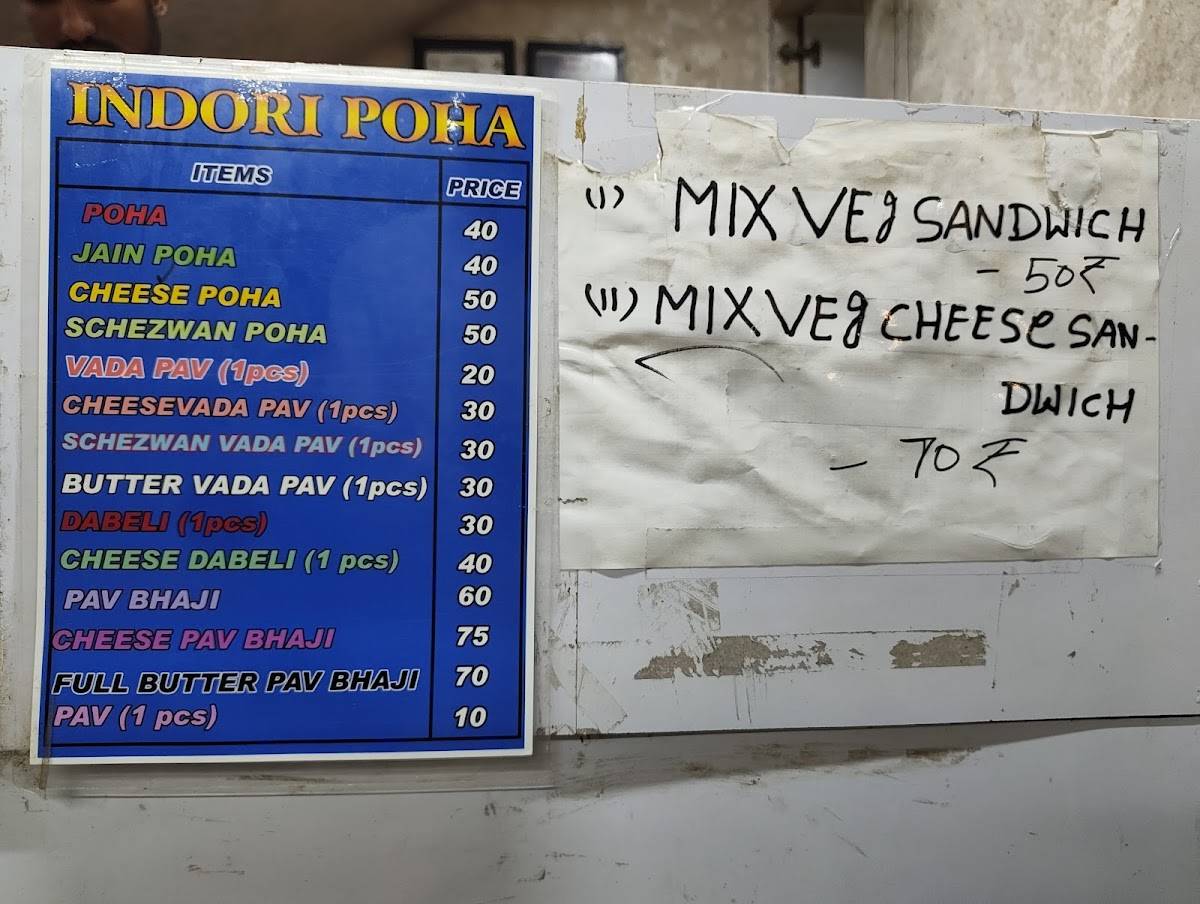 INDORI POHA
ITEMS PRICE
POHA 40
JAIN POHA 40
CHEESE POHA 50
SCHEZWAN POHA 50
VADA PAV (1pcs) 20
CHEESEVADA PAV (1pcs) 30
SCHEZWAN VADA PAV (1pcs) 30
BUTTER VADA PAV (1pcs) 30
DABELI (1pcs) 30
CHEESE DABELI (1 pcs) 40
PAV BHAJI 60
CHEESE PAV BHAJI 75
FULL BUTTER PAV BHAJI 70
PAV (1 pcs) 10
(I) MIX VEg SANDWICH
- 50₹
(II) MIX VEg CHEESe SAN-
DWICH
- 70 ₹